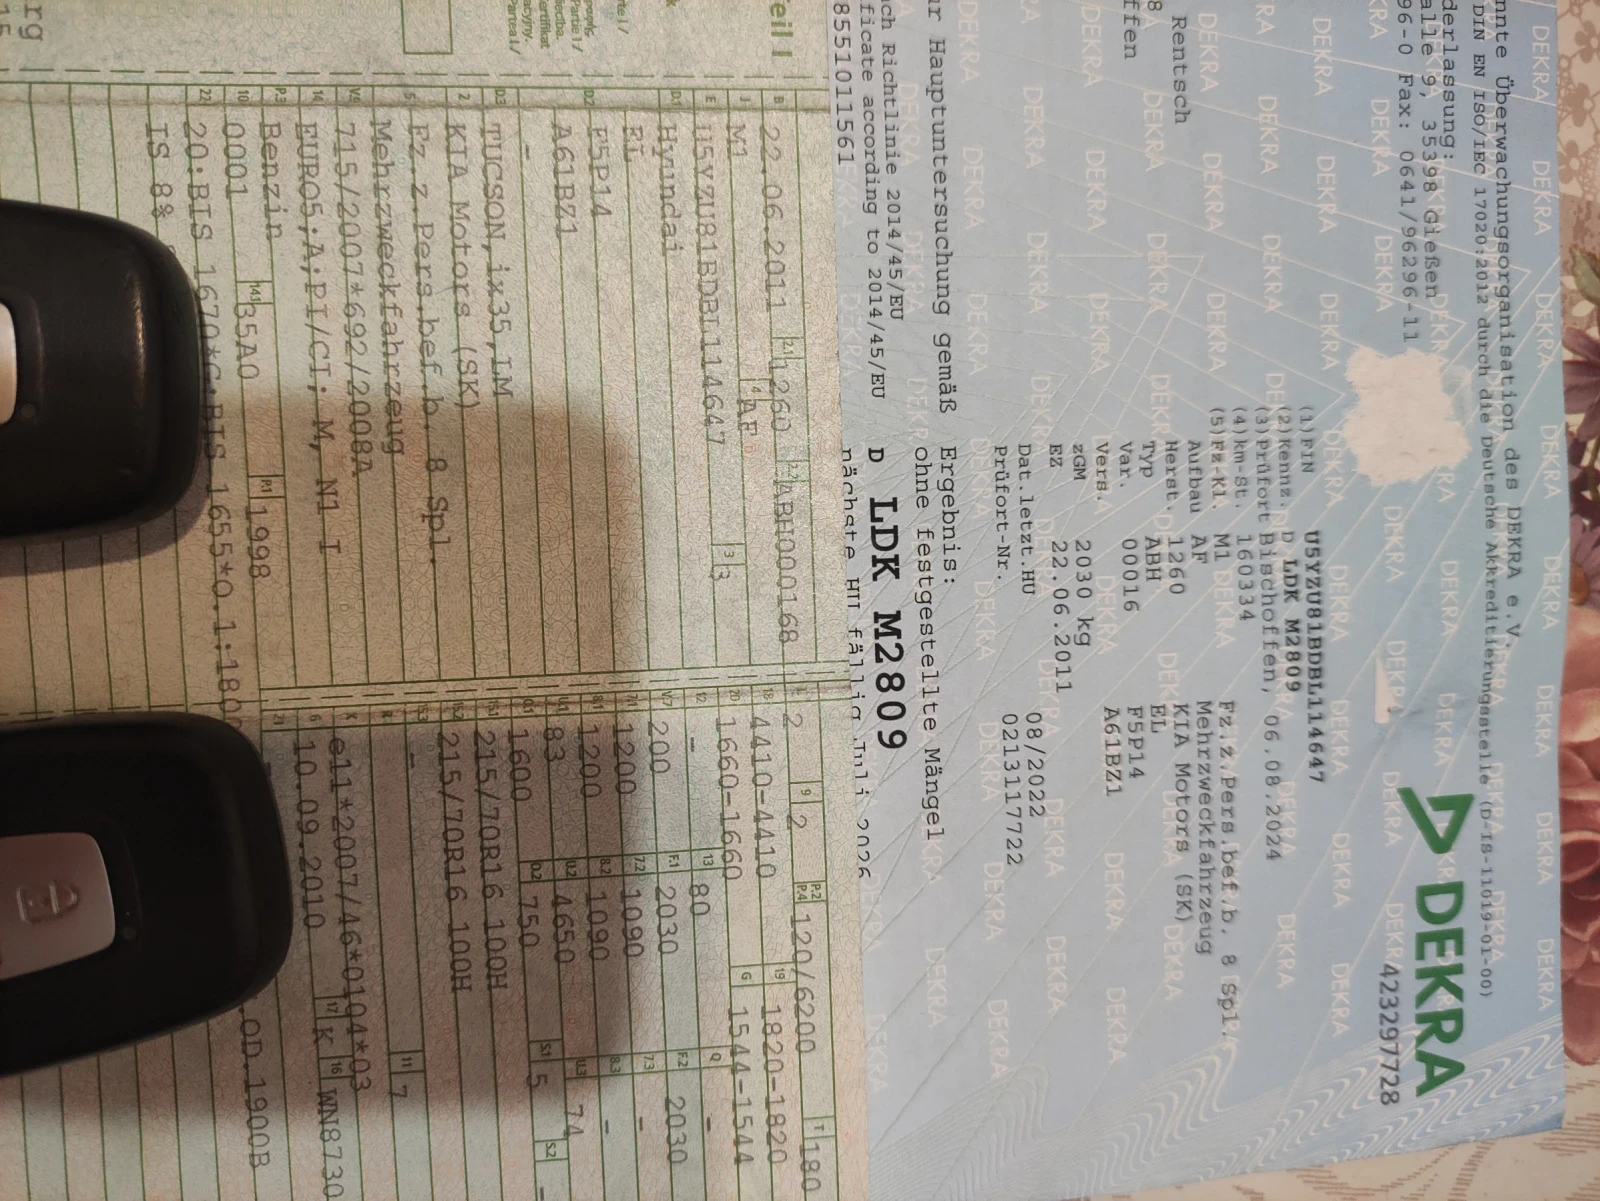 nnte Überwachungsorganisation des DEKRA e.V.
DIN EN ISO/IEC 17020:2012 durch die Deutsche Akkreditierungsstelle (D-IS-11019-01-00)
derlassung:
alle 9, 35398 Gießen
96-0 Fax: 0641/96296-11
DEKRA
42329728
(1)FIN U5YZU81BDBL114647
(2)Kennz. D LDK M2809
(3)Prüfort Bischoffen, 06.08.2024
(4)km-St. 160334
(5)Fz-Kl. M1 Fz.z.Pers.bef.b. 8 Spl.
Aufbau AF Mehrzweckfahrzeug
Herst. 1260 KIA Motors (SK)
Typ ABH EL
Var. 00016 F5P14
Vers. A61BZ1
zGM 2030 kg
EZ 22.06.2011
Dat.letzt.HU 08/2022
Prüfort-Nr. 02131117722
8 Rentsch
ffen
ur Hauptuntersuchung gemäß Ergebnis:
ohne festgestellte Mängel
ach Richtlinie 2014/45/EU
ficate according to 2014/45/EU
D LDK M2809
8551011561 nächste HU fällig Juli 2026
eil I
B 22.06.2011 2.1 1260 2.2 ABH000168
J M1 4 AF
E U5YZU81BDBL114647 3 3
D.1 Hyundai
EL
D.2 F5P14
A61BZ1
-
D.3 TUCSON,ix35,LM
2 KIA Motors (SK)
5 Fz.z.Pers.bef.b. 8 Spl.
Mehrzweckfahrzeug
V.9 715/2007*692/2008A
14 EURO5;A;PI/CI; M, N1 I
P.3 Benzin
10 0001 14.1 35A0 P.1 1998
22 20:BIS 1670*G:BIS 1655*0.1:180
.OD.1900B
IS 8%
L 2 9 2 P.2 P.4 120/6200 T 180
18 4410-4410 19 1820-1820
20 1660-1660 G 1544-1544
12 - 13 80 Q -
V.7 200 F.1 2030 F.2 2030
7.1 1200 7.2 1090 7.3 -
8.1 1200 8.2 1090 8.3 -
U.1 83 U.2 4650 U.3 74
O.1 1600 O.2 750 S.1 5 S.2 -
15.1 215/70R16 100H
15.2 215/70R16 100H
15.3 -
R 11 7
K e11*2007/46*0104*03
6 10.09.2010 17 K 16 WN8730
21
rg